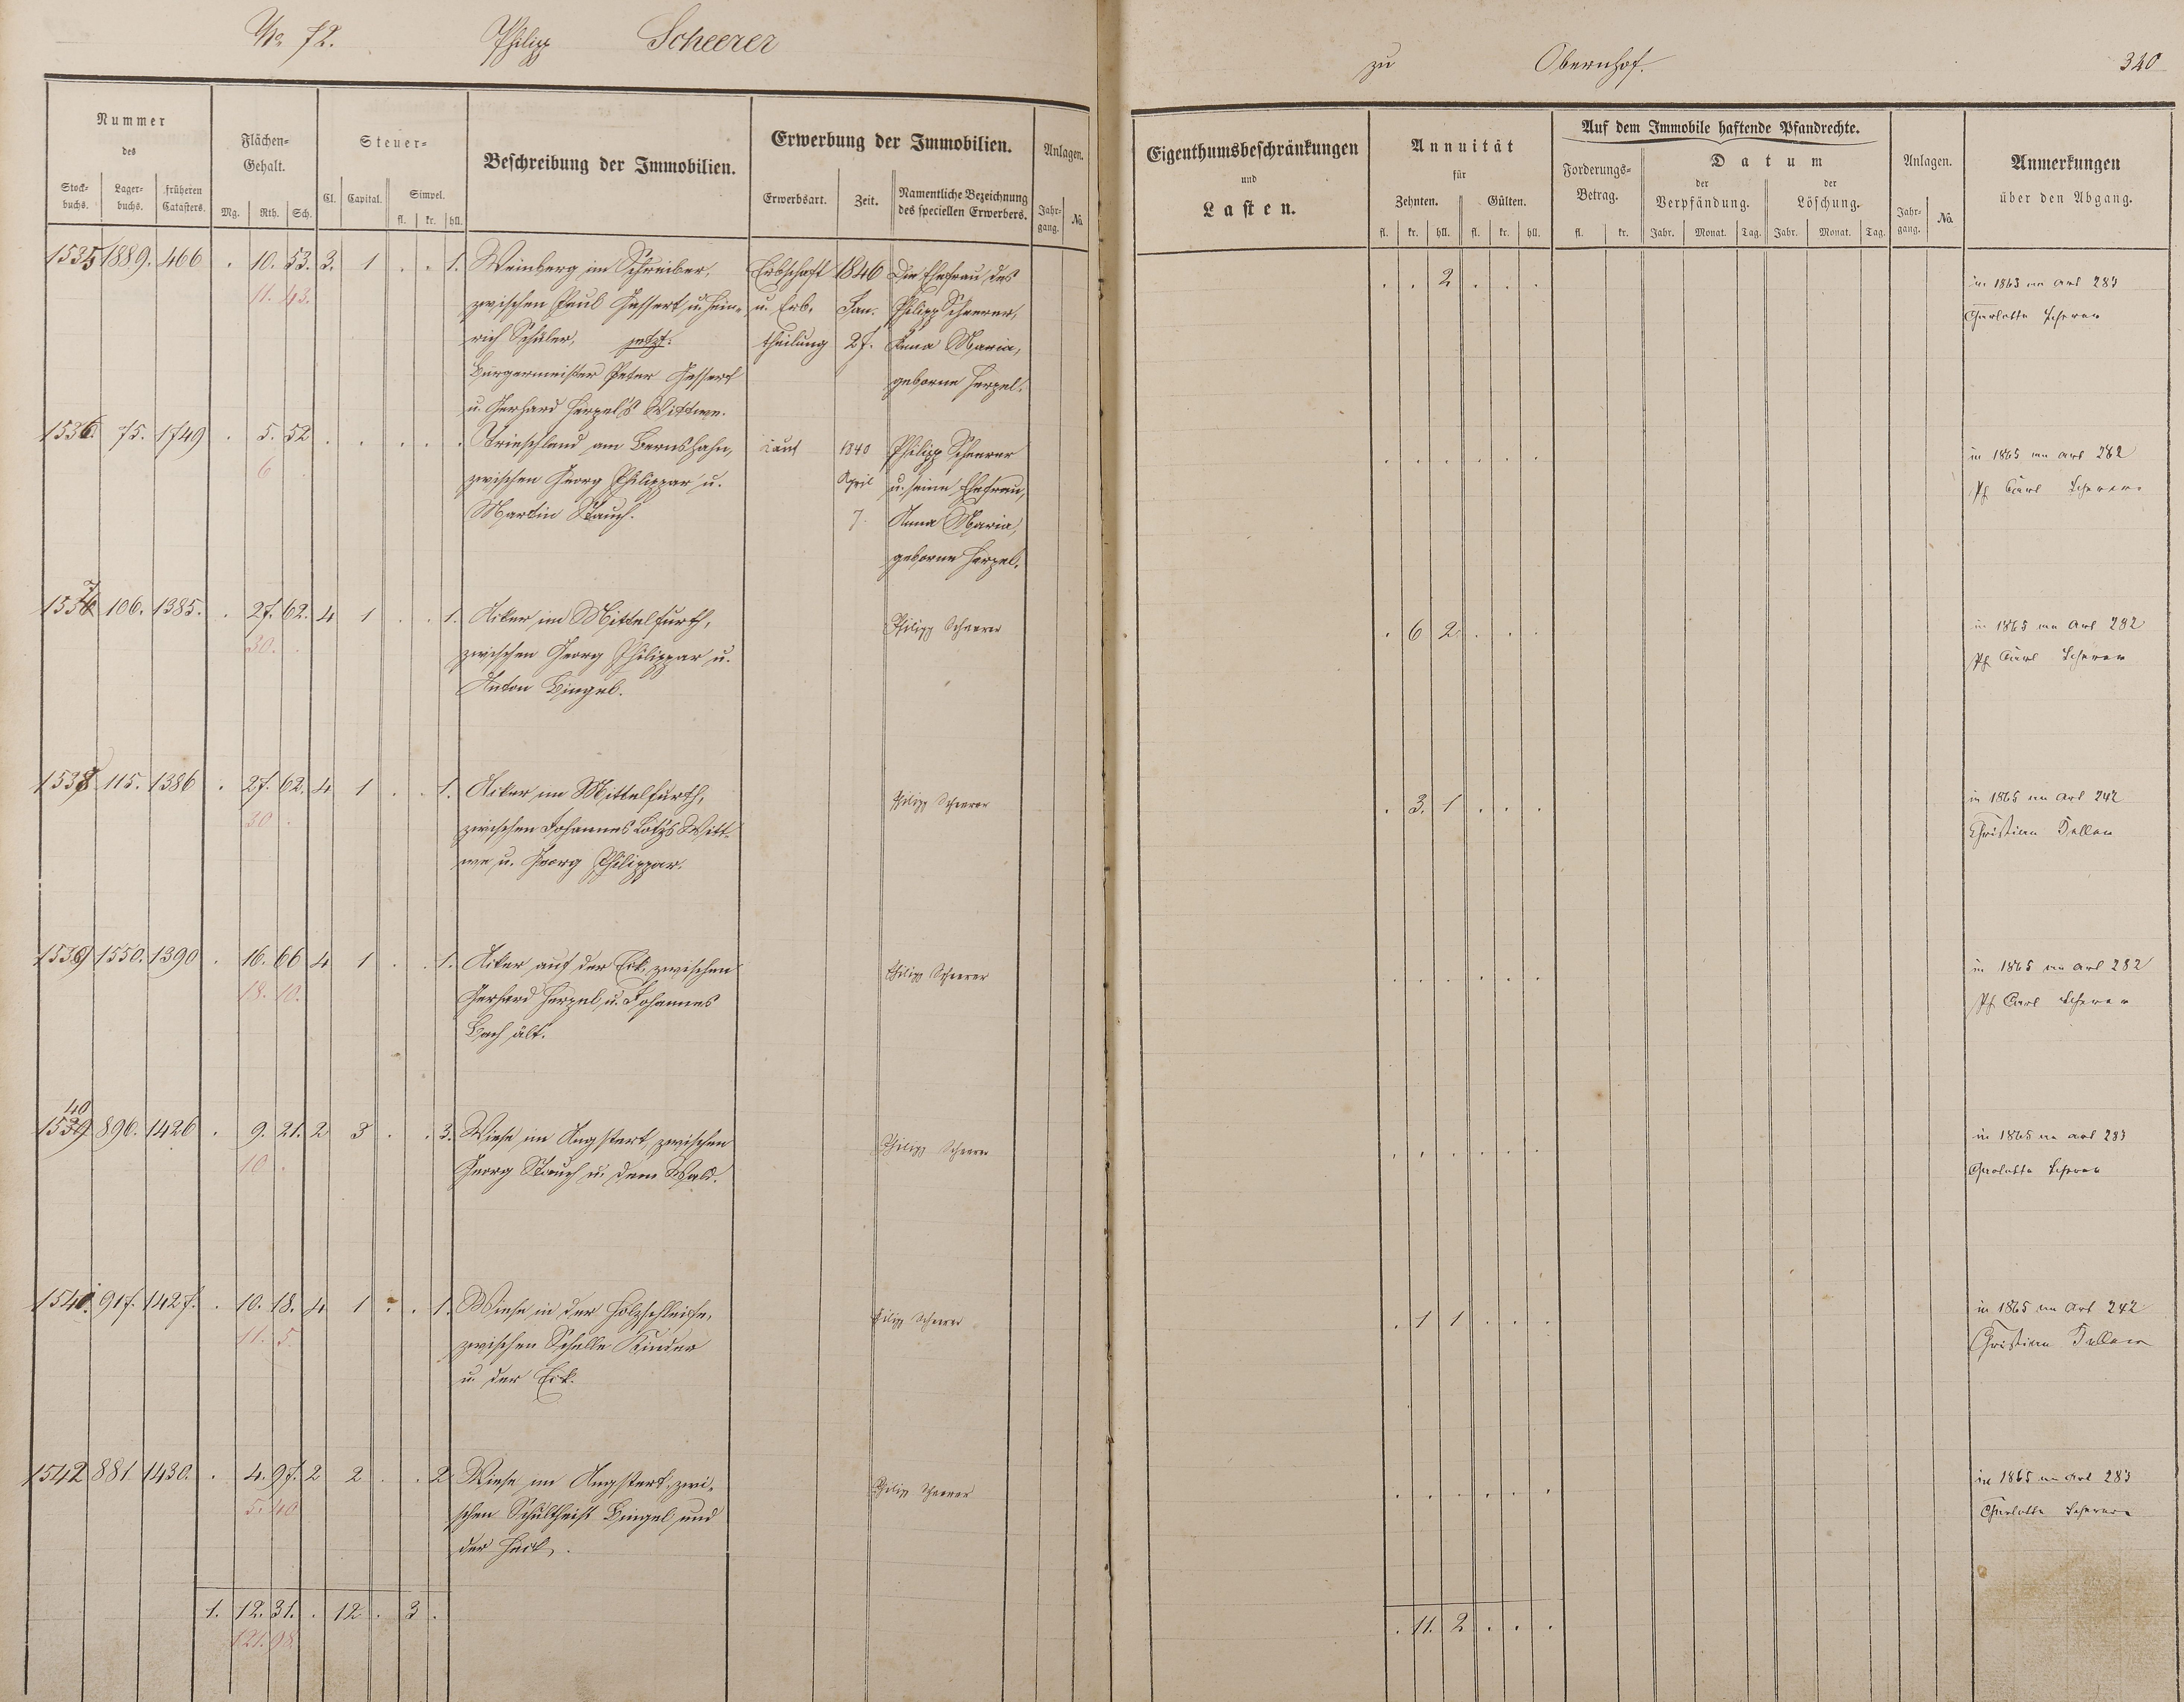 No 72. Philipp Scheerer
zu Obernhof. 340
Nummer des
Stockbuchs. Lagerbuchs. früheren Catasters.
Flächen-Gehalt.
Mg. Rth. Sch.
Steuer-
Cl. Capital. Simpel.
fl. kr. hll.
Beschreibung der Immobilien.
Erwerbung der Immobilien.
Erwerbsart. Zeit. Namentliche Bezeichnung des speciellen Erwerbers.
Anlagen.
Jahrgang. No.
Eigenthumsbeschränkungen
und
Lasten.
Annuität
für
Zehnten. Gülten.
fl. kr. hll. fl. kr. hll.
Auf dem Immobile haftende Pfandrechte.
Forderungs-Betrag.
fl. kr.
Datum
der Verpfändung. der Löschung.
Jahr. Monat. Tag. Jahr. Monat. Tag.
Anlagen.
Jahrgang. No.
Anmerkungen
über den Abgang.
1535 1889. 466 . 10. 53. 3. 1 . . 1. Weinberg im Schreiber, Erbschaft 1846 Die Ehefrau des . . 2 . . . in 1863 an Art 283
11. 43. zwischen Paul Hassert u. Hein- u. Erb- Jan. Philipp Scheerer, Charlotte Scherer
rich Schüler, jetzt: theilung 27. Anna Maria,
Bürgermeister Peter Hassert geborne Herpel.
u. Gerhard Herpel's Wittwe.
1536. 75. 1749 . 5. 52 . . . . . Trieschland am Bernshahn, Kauf 1840 Philipp Scheerer . . . . . . in 1865 an Art 282
6 zwischen Georg Philippar u. April u. seine Ehefrau, Ph Carl Scherer
Martin Stauch. 7. Anna Maria,
geborne Herpel.
7
1536 106. 1385. . 27. 62. 4 1 . . 1. Acker im Mittelfurth, Philipp Scheerer . 6 2 . . . in 1865 an Art 282
30. zwischen Georg Philippar u. Ph Carl Scherer
Anton Bingel.
1538 115. 1386 . 27. 62. 4 1 . . 1. Acker im Mittelfurth, Philipp Scheerer . 3. 1 . . . in 1865 an Art 242
30 zwischen Johannes Lotz's Witt-
we u. Georg Philippar.
1539 1550. 1390 . 16. 66 4 1 . . 1. Acker auf der Eck, zwischen Philipp Scheerer . . . . . . in 1865 an Art 282
18. 10. Gerhard Herpel u. Johannes Ph Carl Scherer
Bach ält.
40
1539 896. 1426 . 9. 21. 2 3 . . 3. Wiese im Angstert, zwischen Philipp Scheerer . . . . . . in 1865 an Art 283
10 Georg Stauch u. dem Wald. Charlotte Scherer
1541. 917. 1427. . 10. 18. 4 1 . . 1. Wiese in der Holzschleife, Philipp Scheerer . 1 1 . . . in 1865 an Art 242
11. 5. zwischen Schelle Kinder
u. der Eck.
1542 881 1430. . 4. 97. 2 2 . . 2 Wiese im Angstert, zwi- Philipp Scheerer . . . . . . in 1865 an Art 283
5. 40 schen Schultheiß Bingel und Charlotte Scherer
der Heck.
1. 12. 31. . 12 . 3 . . 11. 2 . . .
121. 98